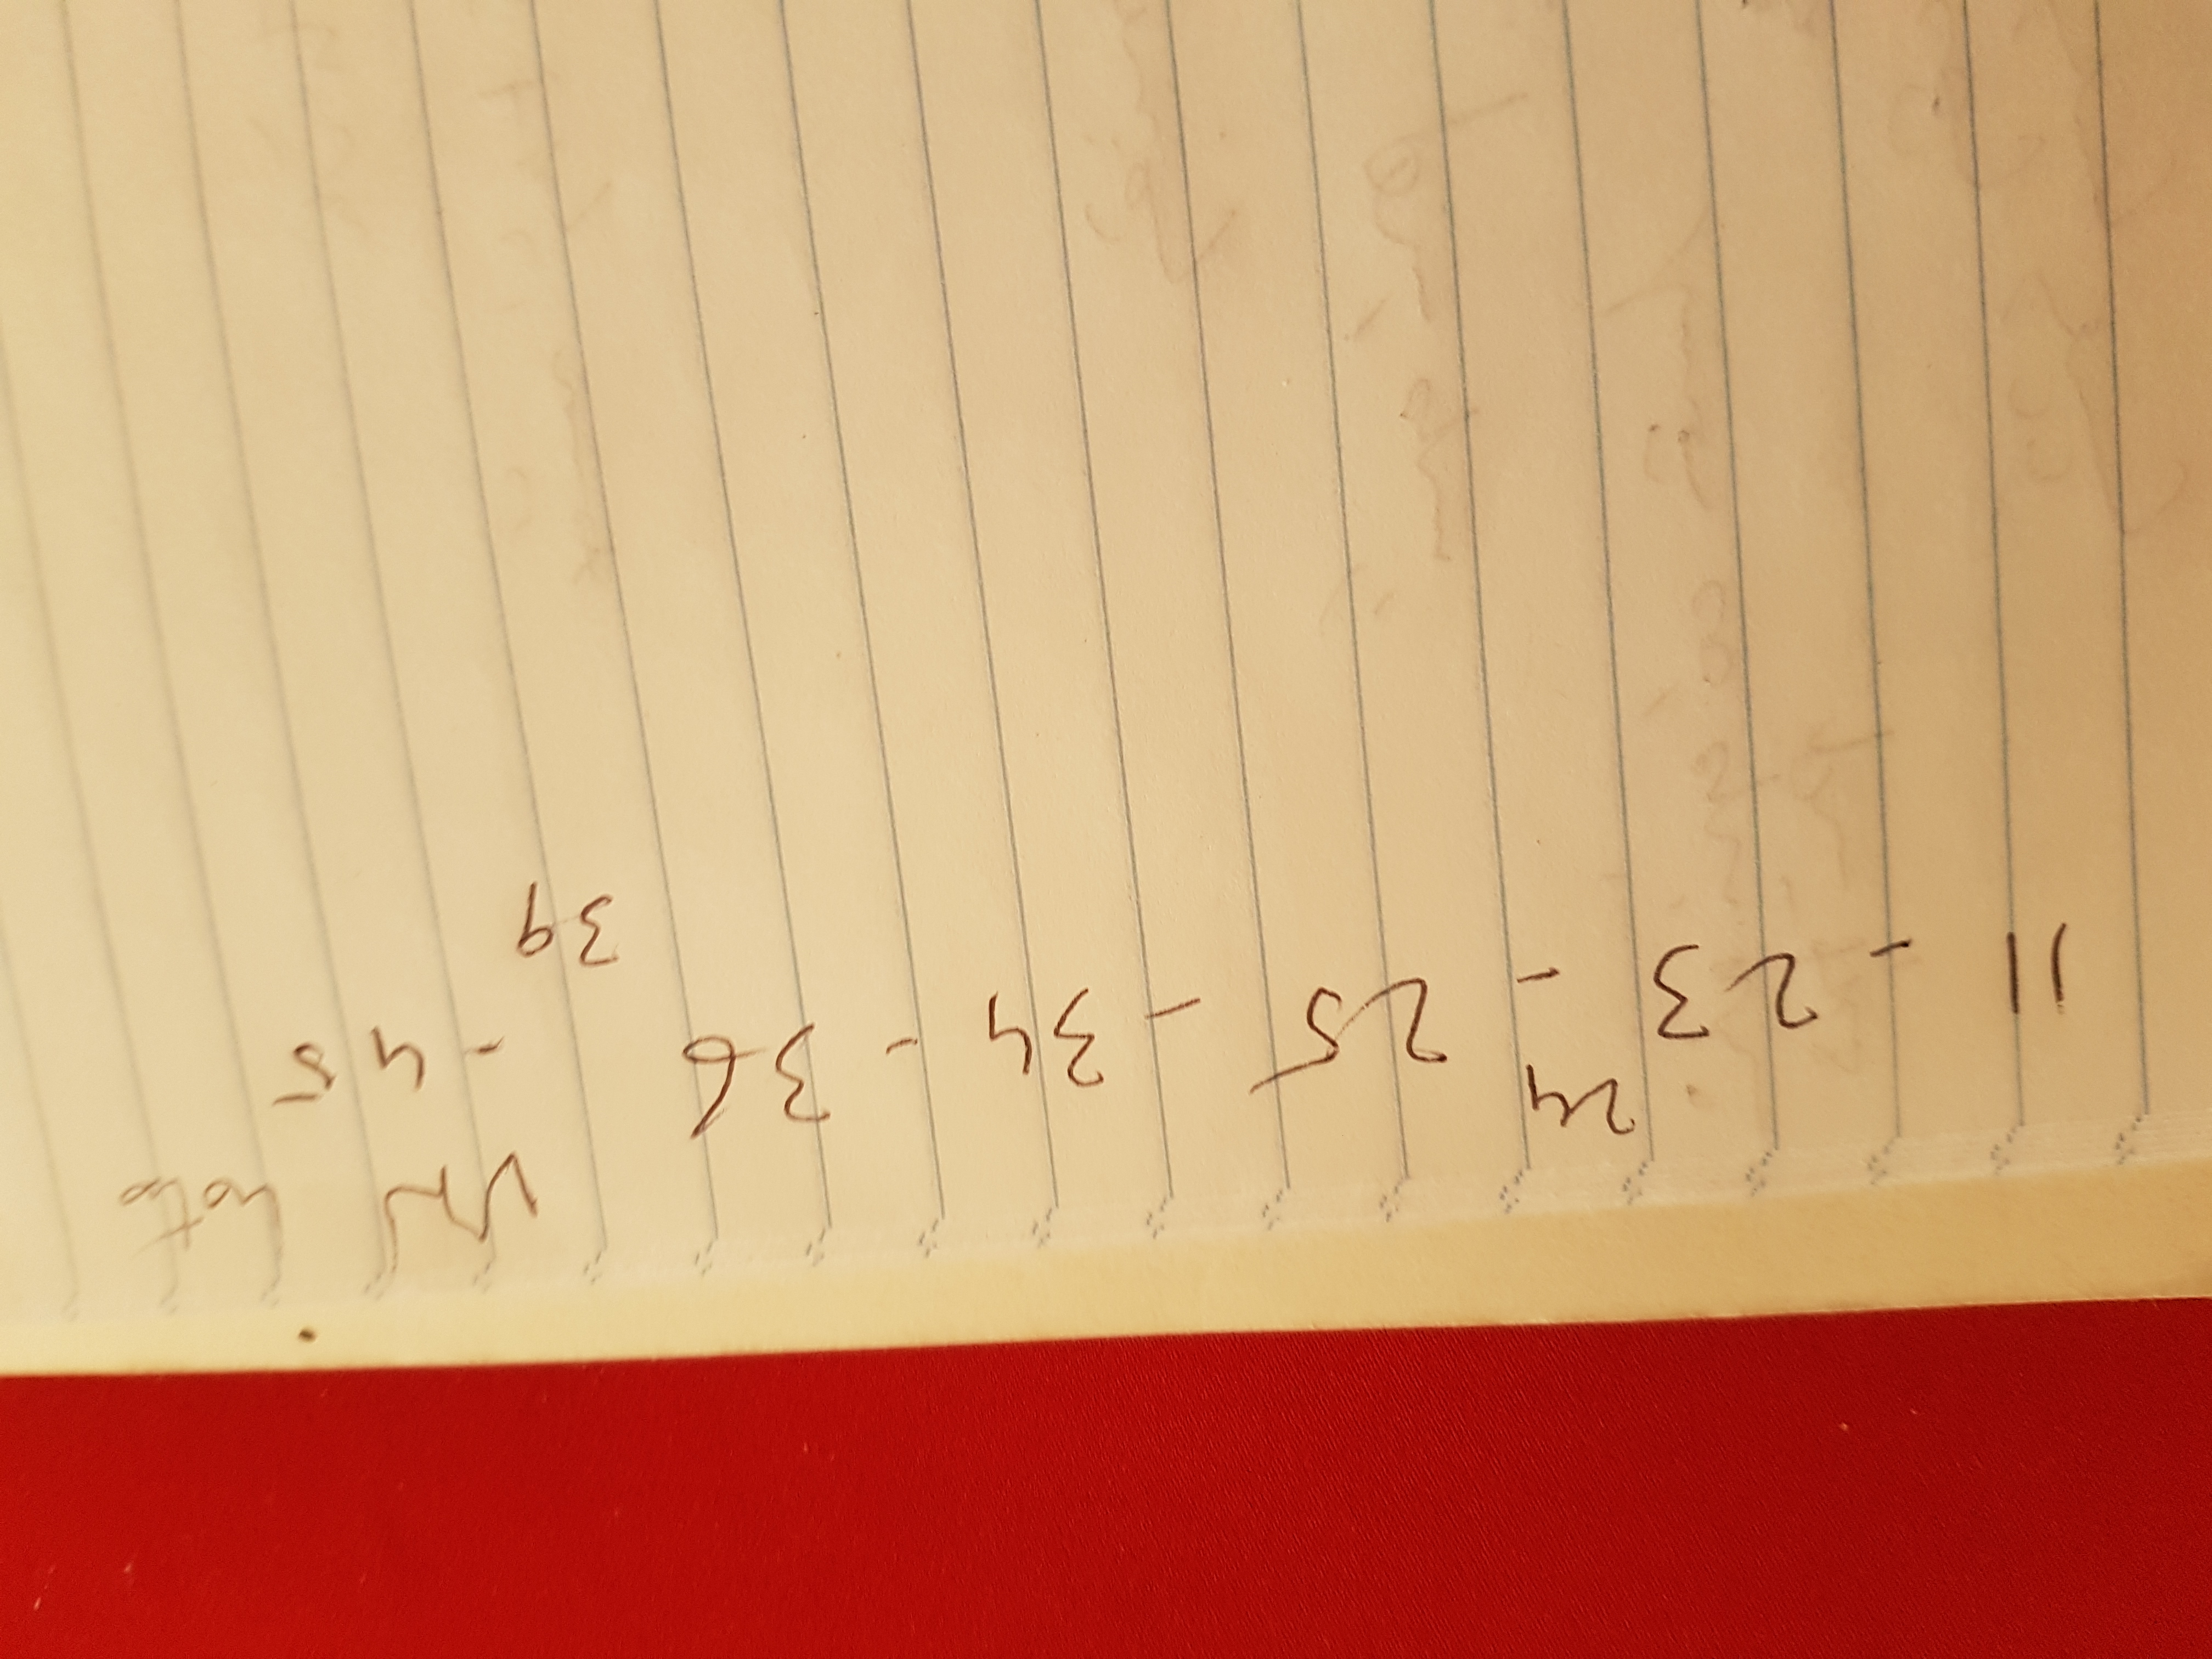 24
11 - 23 - 25 - 34 - 36 - 45
39